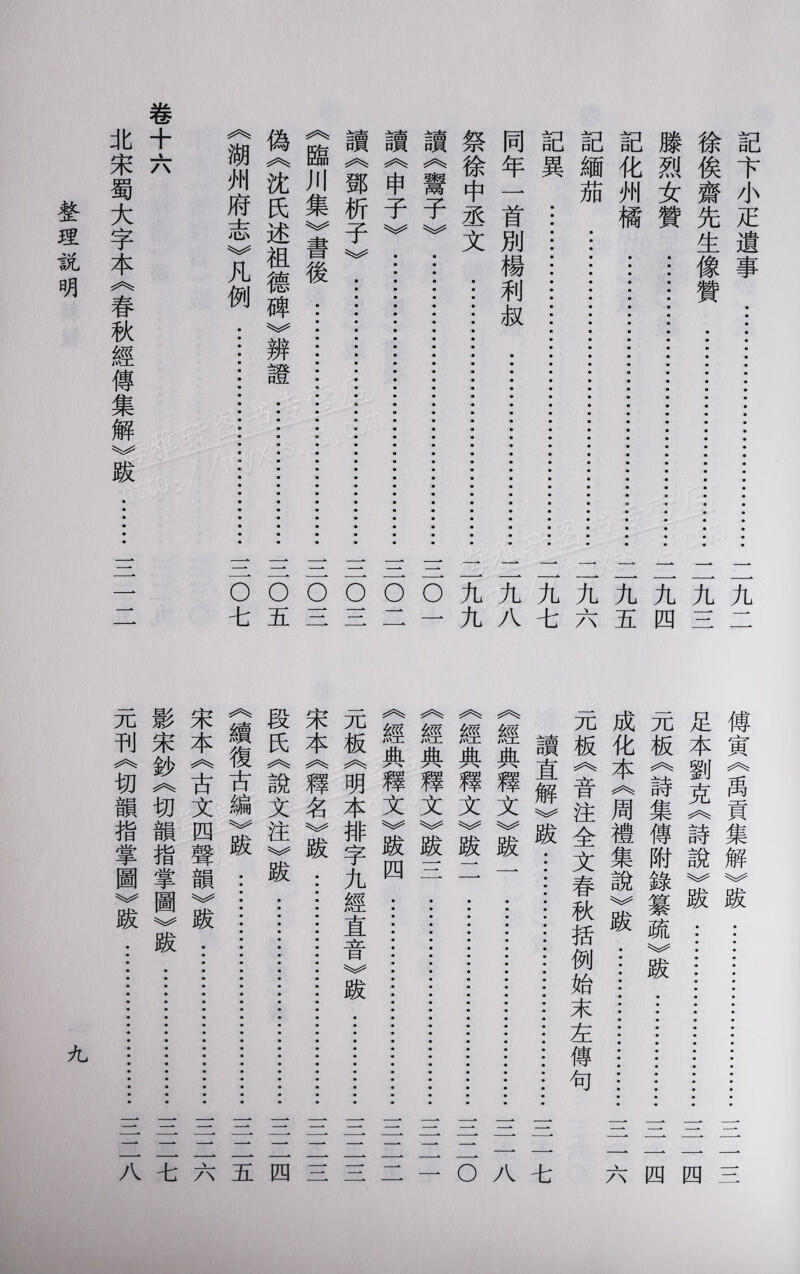 記卞小疋遺事……二九二
徐俟齋先生像贊……二九三
滕烈女贊……二九四
記化州橘……二九五
記緬茄……二九六
記異……二九七
同年一首別楊利叔……二九八
祭徐中丞文……二九九
讀《鬻子》……三〇一
讀《申子》……三〇二
讀《鄧析子》……三〇三
《臨川集》書後……三〇三
偽《沈氏述祖德碑》辨證……三〇五
《湖州府志》凡例……三〇七
卷十六
北宋蜀大字本《春秋經傳集解》跋……三一二
傅寅《禹貢集解》跋……三一三
足本劉克《詩說》跋……三一四
元板《詩集傳附錄纂疏》跋……三一四
成化本《周禮集說》跋……三一六
元板《音注全文春秋括例始末左傳句
讀直解》跋……三一七
《經典釋文》跋一……三一八
《經典釋文》跋二……三二〇
《經典釋文》跋三……三二一
《經典釋文》跋四……三二二
元板《明本排字九經直音》跋……三二三
宋本《釋名》跋……三二三
段氏《說文注》跋……三二四
《續復古編》跋……三二五
宋本《古文四聲韻》跋……三二六
影宋鈔《切韻指掌圖》跋……三二七
元刊《切韻指掌圖》跋……三二八
整理説明
九